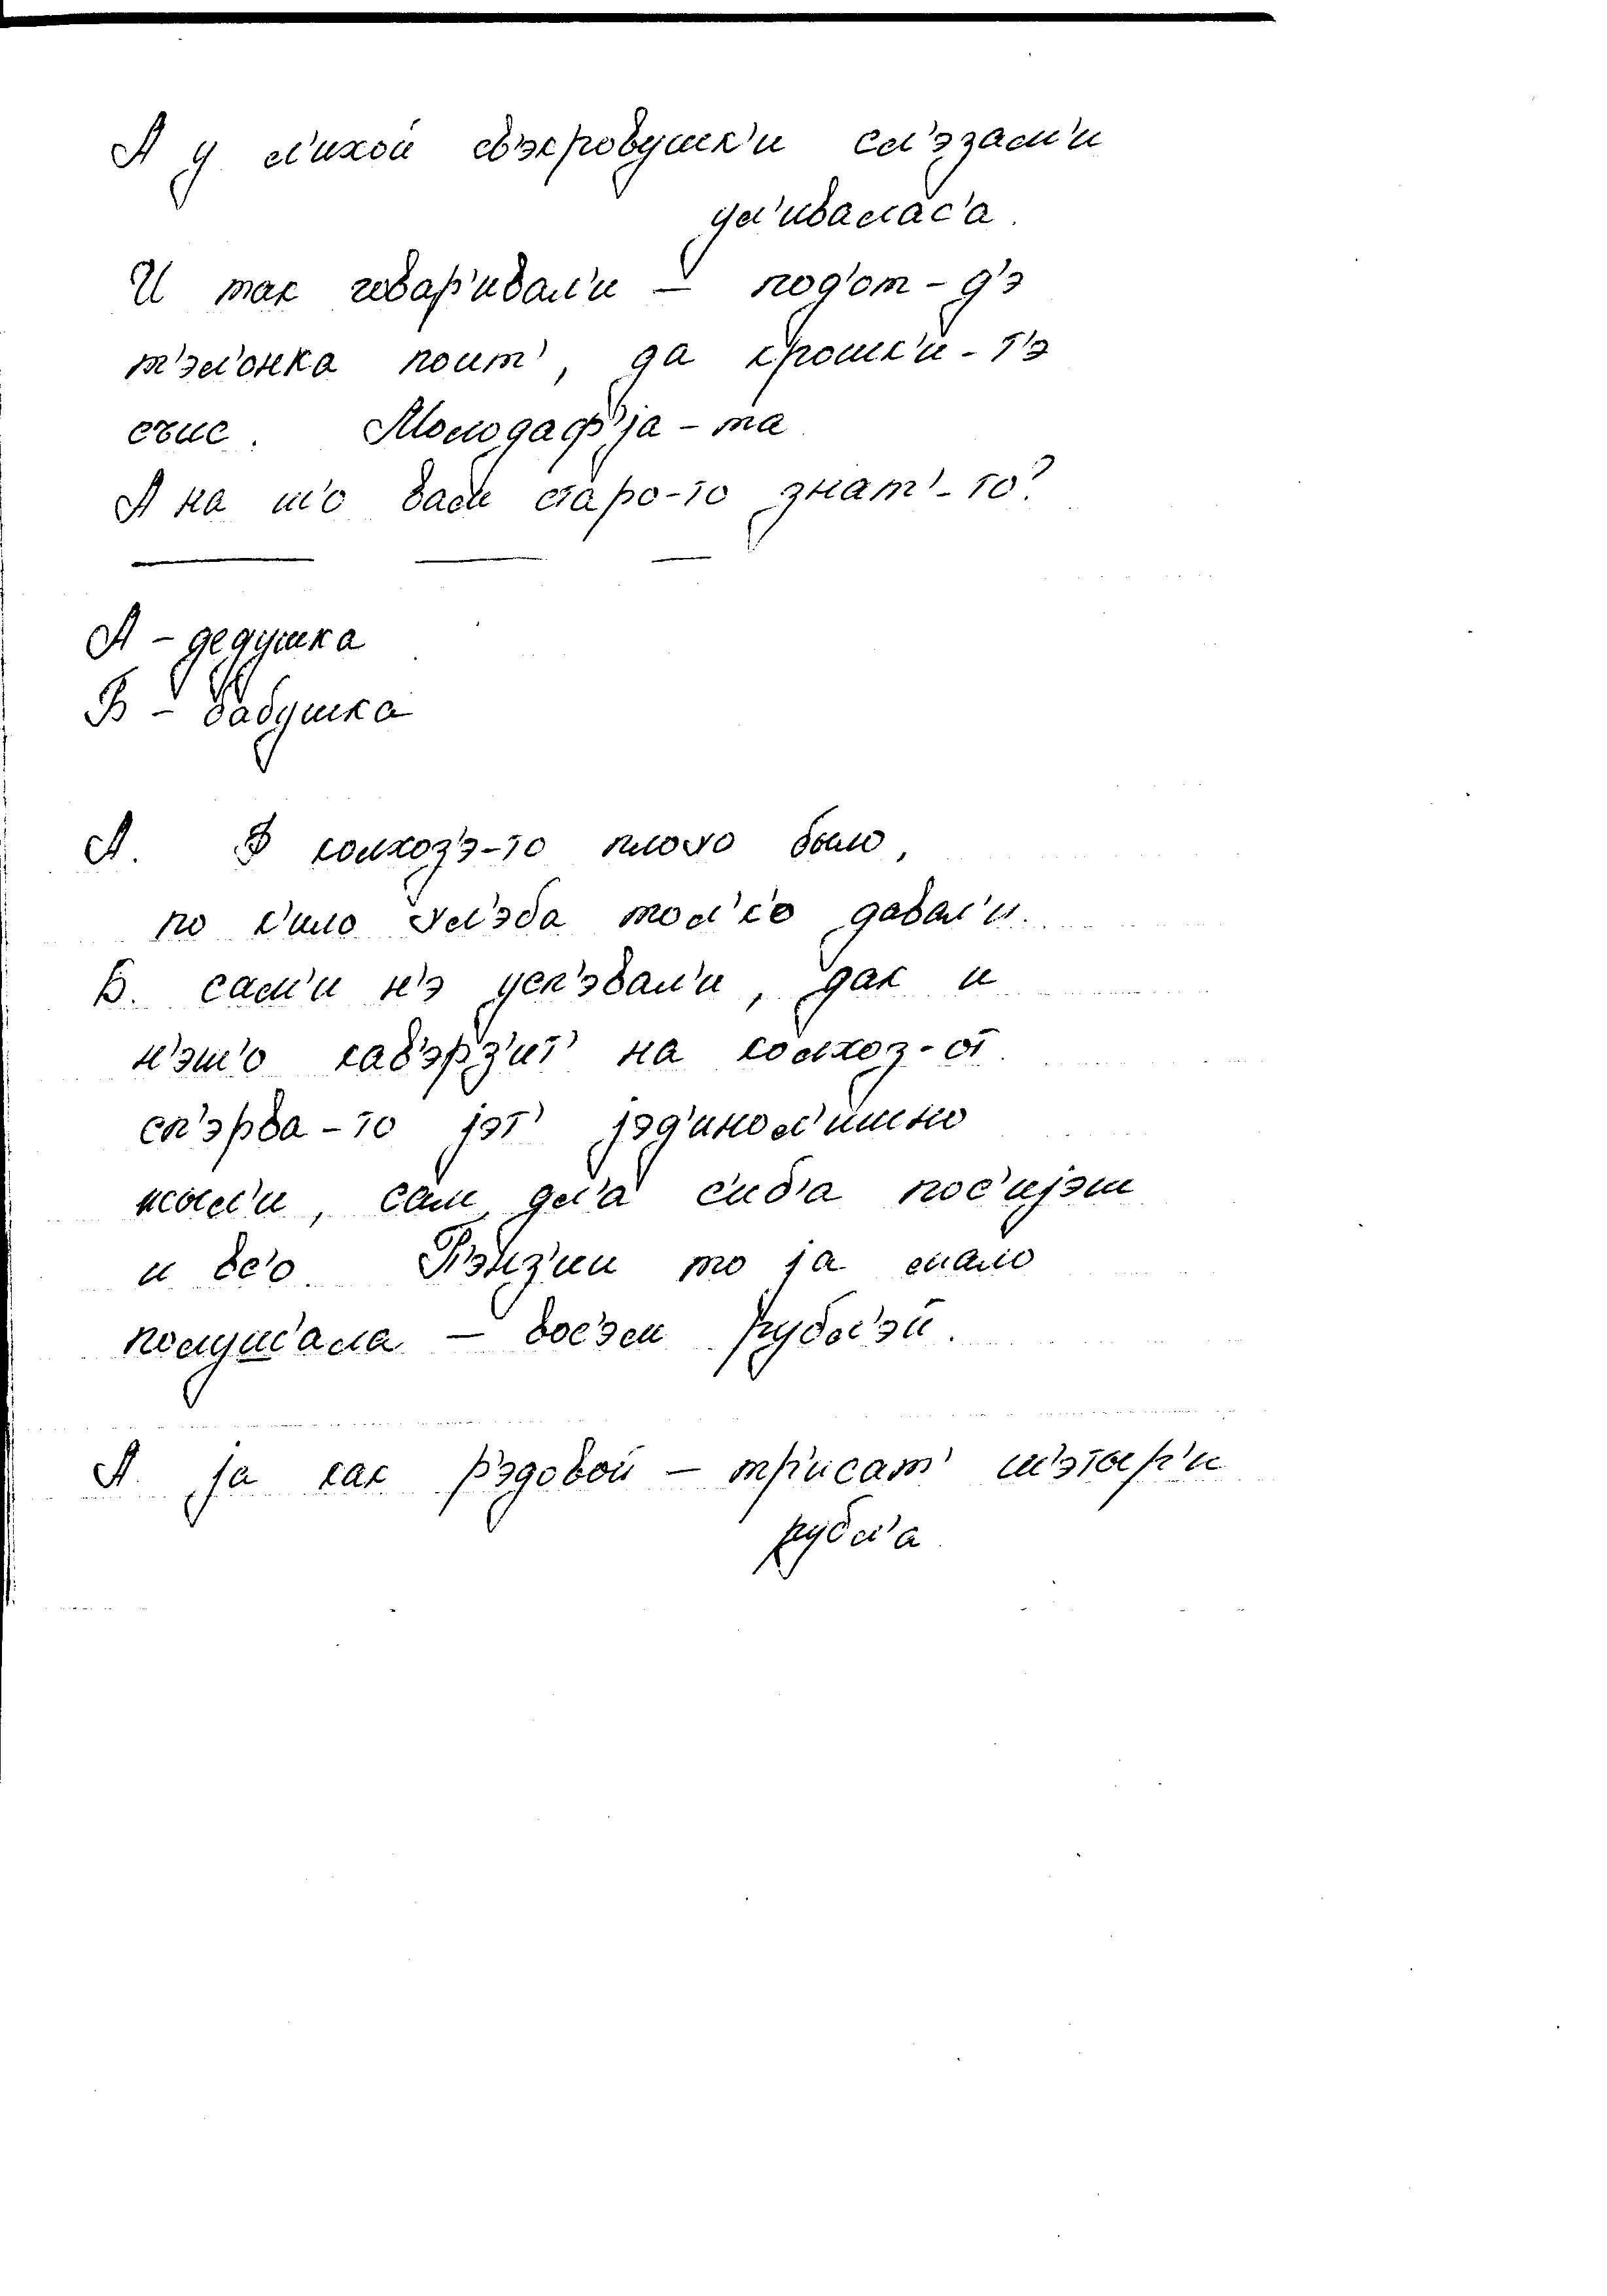 А у л'ихой св'экровушк'и сл'эзам'и
ул'ивалас'а.
И так говар'ивал'и – под'от-д'э
т'эл'онка поит', да крошк'и-т'э
Молодаф'jа-та
А на ш'о вам старо-то знат'-то?
А – дедушка
Б – бабушка
А. В колхоз'э-то плохо было,
по к'ило хл'эба тол'ко давал'и.
Б. сам'и н'э усп'эвал'и, дак и
н'эш'о кав'эрз'ит' на колхоз-от
сп'эрва-то jэт' jэд'инол'ишно
жыл'и, сам дл'а с'иб'а пос'иjэш
и вс'о. П'энз'ии то jа мало
получ'ала – вос'эм рубл'эй.
А. jа как р'эдовой – тр'исат' ш'этыр'и
рубл'а